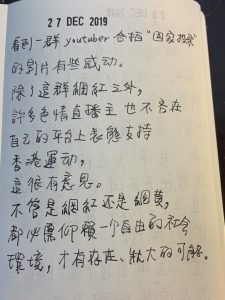 27 DEC 2019
看到一群 youtuber 合拍“國家機器”
的影片有些感动。
除了這群網紅之外，
許多色情直播主也不吝在
自己的平台上表態支持
香港運動，
這很有意思。
不管是網紅还是網黃，
都必需仰賴一个自由的社会
環境，才有存在、壯大的可能。